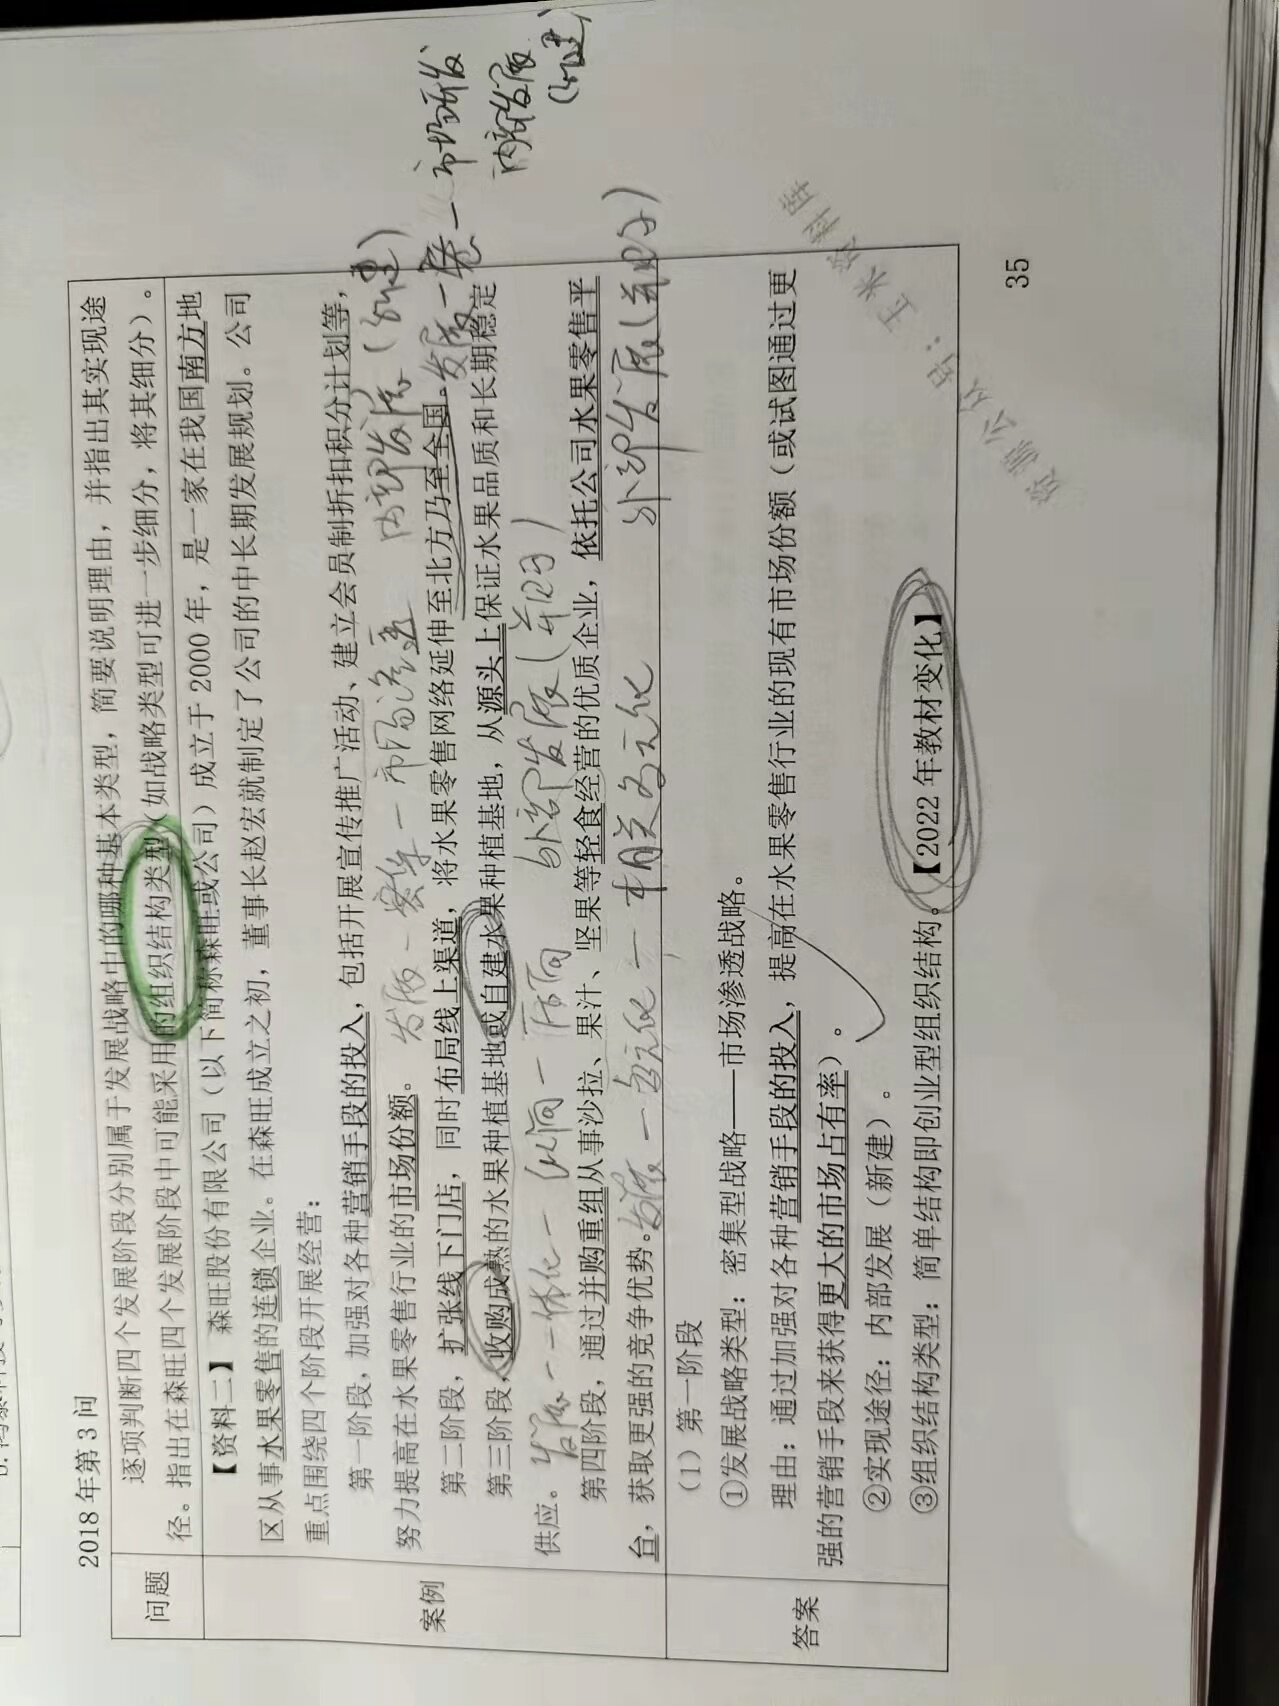 2018 年第 3 问
问题
逐项判断四个发展阶段分别属于发展战略中的哪种基本类型，简要说明理由，并指出其实现途
径。指出在森旺四个发展阶段中可能采用的组织结构类型（如战略类型可进一步细分，将其细分）。
案例
【资料二】 森旺股份有限公司（以下简称森旺或公司）成立于 2000 年，是一家在我国南方地
区从事水果零售的连锁企业。在森旺成立之初，董事长赵宏就制定了公司的中长期发展规划。公司
重点围绕四个阶段开展经营：
第一阶段，加强对各种营销手段的投入，包括开展宣传推广活动、建立会员制折扣积分计划等，
努力提高在水果零售行业的市场份额。
发展一密集一市场渗透 内部发展（新建）
第二阶段，扩张线下门店，同时布局线上渠道，将水果零售网络延伸至北方乃至全国。
发展一
一市场开发
内部发展
（新建）
第三阶段，收购成熟的水果种植基地或自建水果种植基地，从源头上保证水果品质和长期稳定
供应。
发展一一体化一纵向一后向 外部发展（并购）
第四阶段，通过并购重组从事沙拉、果汁、坚果等轻食经营的优质企业，依托公司水果零售平
台，获取更强的竞争优势。
发展一多元化一相关多元化 外部发展（并购）
答案
（1）第一阶段
①发展战略类型：密集型战略——市场渗透战略。
理由：通过加强对各种营销手段的投入，提高在水果零售行业的现有市场份额（或试图通过更
强的营销手段来获得更大的市场占有率）。
②实现途径：内部发展（新建）。
③组织结构类型：简单结构即创业型组织结构。【2022 年教材变化】
资源公众号：玉米资料库
35